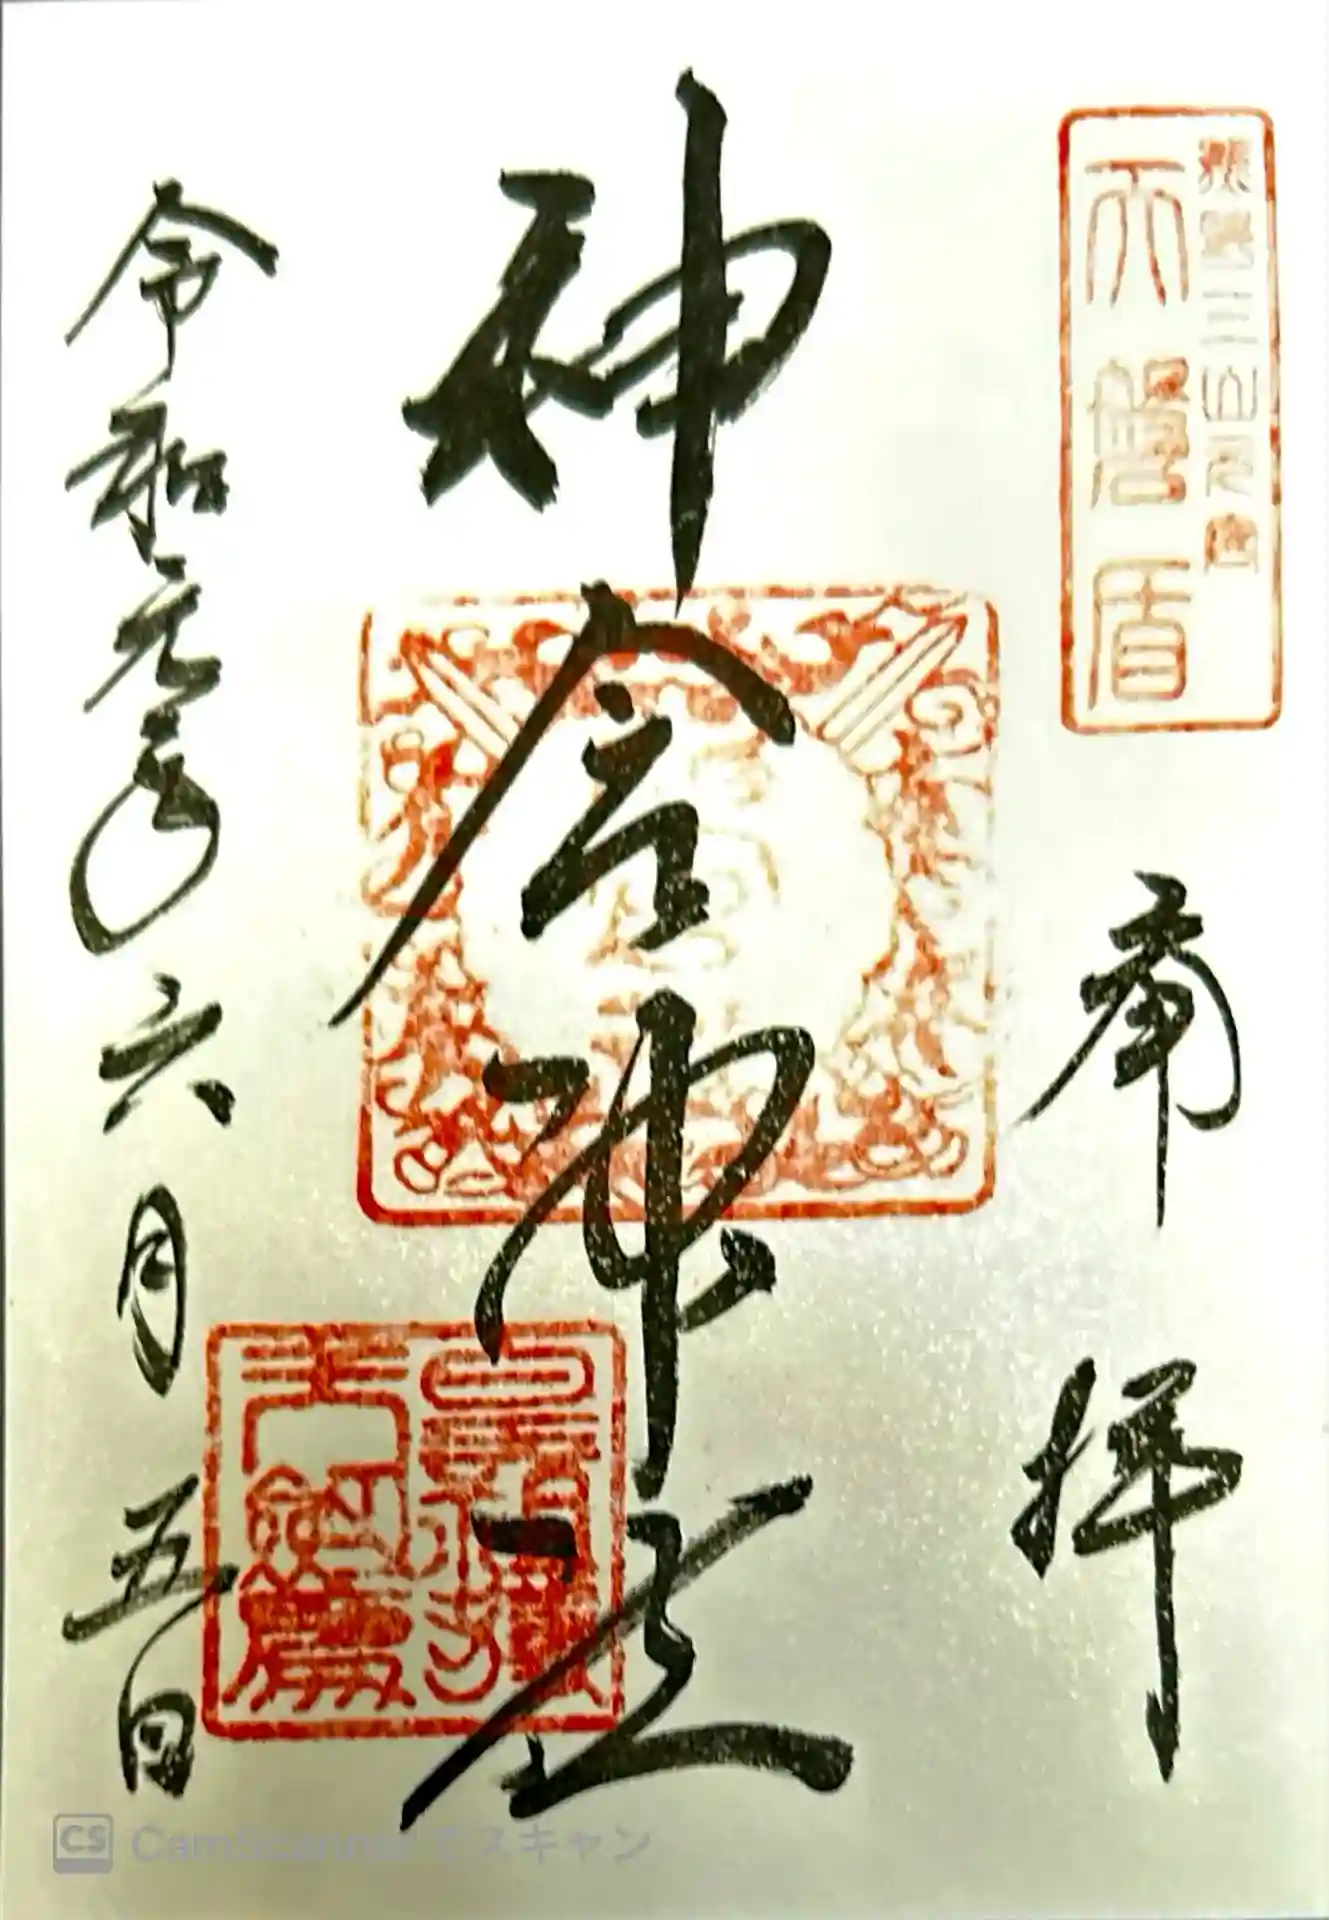 熊野三山元宮
天磐盾
奉拝
神倉神社
令和元年六月五日
CS CamScanner でスキャン